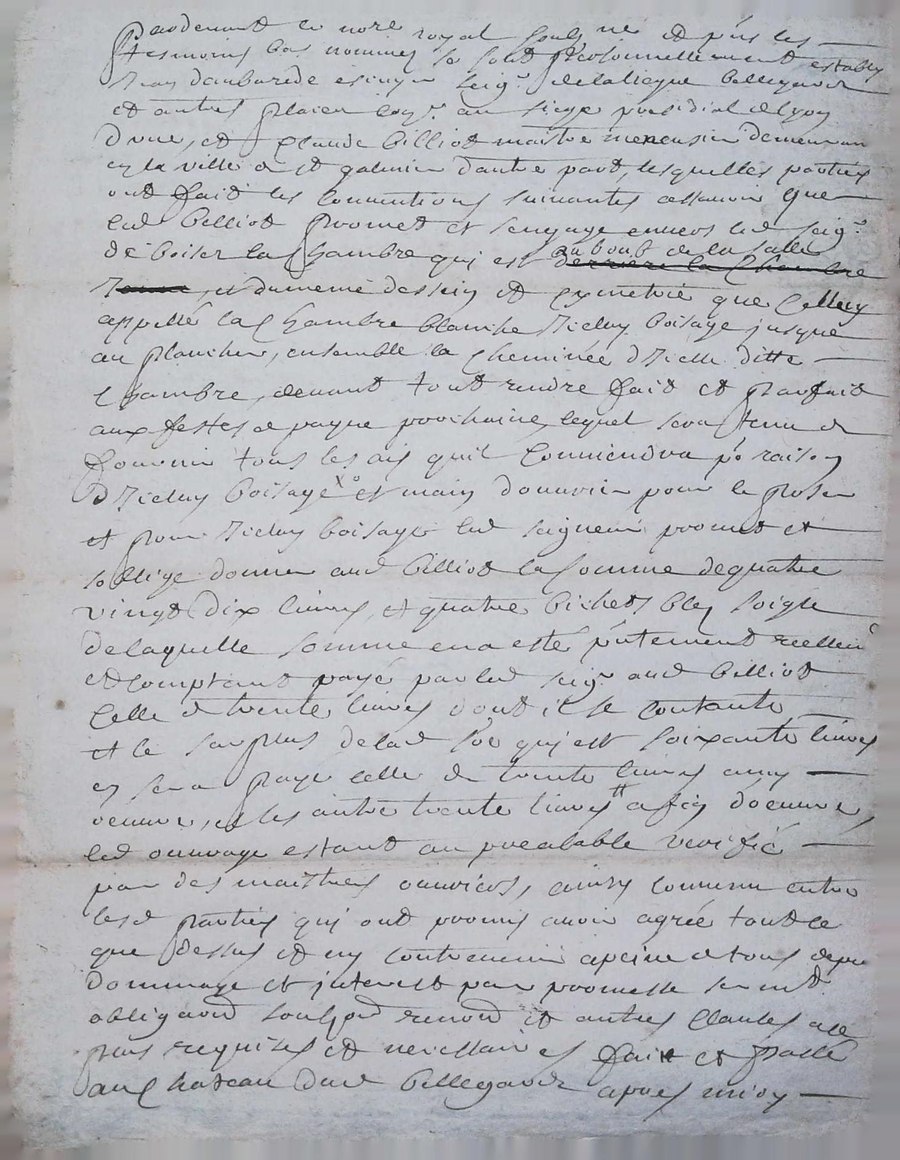 Pardevant le nore royal soubz né et pnts les
tesmoins bas nommes se sont personnellement establys
Jean daubarede escuyer seigr bellegarde
et autres places coner au siege presidial de lyon
dune, et Claude billiot maistre menusier demeurant
en la ville de st galmier dautre part, lesquelles parties
ont fait les conventions suivantes assavoir que
led billiot promet et sengage envers led seigr
de boiser la Chambre qui est au bout de la salle
derriere la Chambre
et du meme dessein et cymetrie que Celluy
appellé la Chambre blanche Icieluy boisage jusque
au plancher, ensemble la Cheminée dIcelle ditte
Chambre, devant tout rendre fait et parfait
aux festes de paque prochaine, lequel sera tenu de
fournir tous les ais quil Conviendra po raison
dIcieluy boisage Xo et main douvrier pour le poser
et pour Icieluy boisage led seigneur promet et
soblige donner aud billiot la somme de quatre
vingt dix livres, et quatre bichets bley soigle
de laquelle somme en a esté pntement reellemt
et Comptant payé par led seigr aud billiot
Celle de trente livres dont il se contante
et le surplus de lad soe qui est soixante livres
en sera payé celle de trente livres
venure, et les autre trente livres a fin doeuvre,
led ouvrage estant au prealable verifié
par des maistres ouvriers, ainsy Convenu entre
lesd parties qui ont promis avoir agrée tout ce
que dessus et ny contrevenir a peine de tous depens
dommage et interest par promesse sermt
obligaon soubzon renon et autres Clauses
plus requises et necessaires fait et passé
au Chateau dud bellegarde apres midy